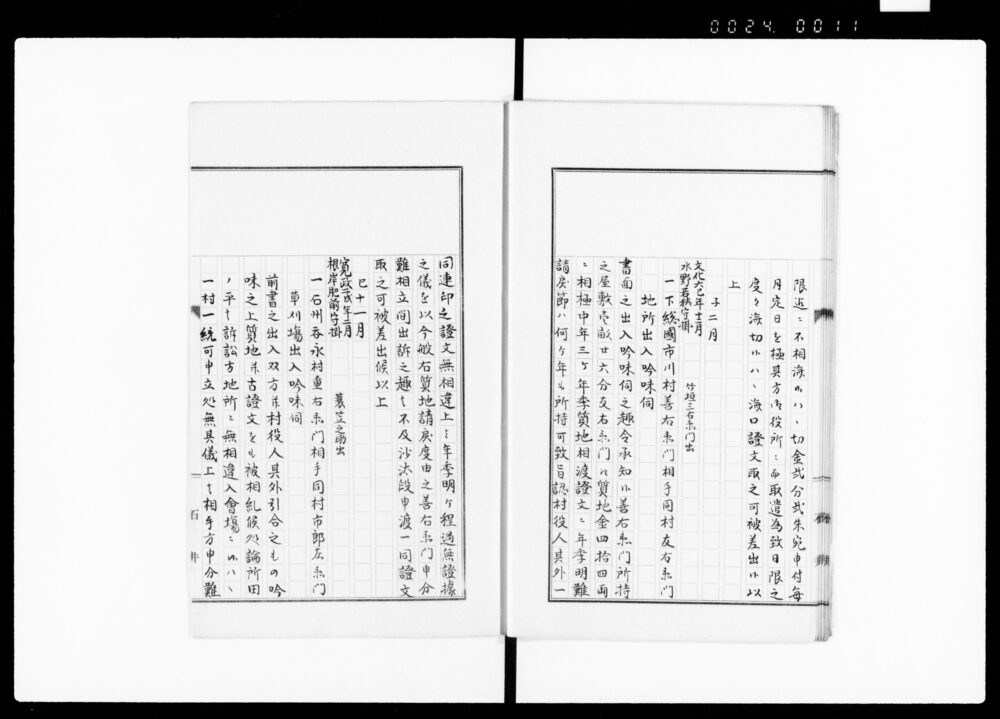 0024.0011
限迄ニ不相済候ハヽ切金弐分弐朱宛申付毎
月定日を極其方御役所ニ而取遣為致日限之
度々済切候ハヽ済口證文取之可被差出候以
上
子二月
文化六巳年十二月
水野若狭守掛
竹垣三右衛門出
一下総國市川村善右衛門相手同村友右衛門
地所出入吟味伺
書面之出入吟味伺之趣令承知候善右衛門所持
之屋敷壱畝廿六分友右衛門江質地金四拾四両
ニ相極申年三ヶ年季質地相渡證文ニ年季明難
請戻節ハ何ヶ年も所持可致旨認村役人其外一
同連印之證文無相違上者年季明ヶ程過無證據
之儀を以今般右質地請戻度由之善右衛門申分
難相立間出訴之趣者不及沙汰段申渡一同證文
取之可被差出候以上
巳十一月
寛政二戌年二月
根岸肥前守掛
蓑笠之助出
一石州吞永村重右衛門相手同村市郎左衛門
草刈場出入吟味伺
前書之出入双方并村役人其外引合之もの吟
味之上質地并古證文をも被相糺候処論所田
ノ平者訴訟方地所ニ無相違入會場ニ候ハヽ
一村一統可申立処無其儀上者相手方申分難